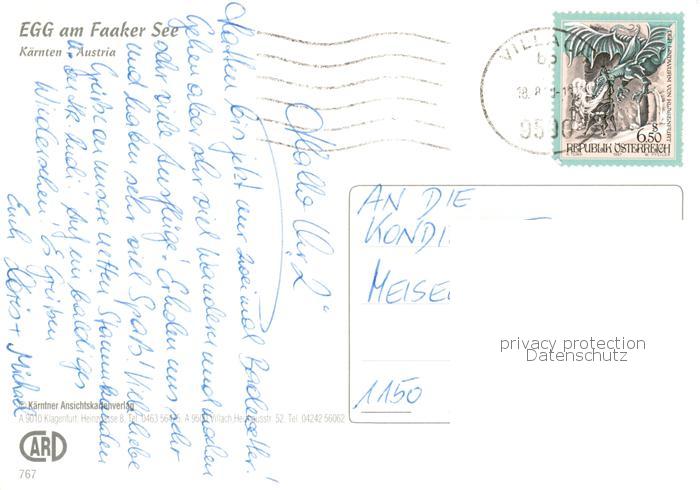 EGG am Faaker See
Kärnten - Austria
Hallo Ihr 2
Hatten bis jetzt nur zweimal Badewetter!
Gehen aber sehr viel wandern und machen
sehr viele Ausflüge. Erholen uns sehr
und haben sehr viel Spaß! Viele liebe
Grüße an unsere netten Stammkunden
Auf ein baldiges
Wiedersehen! Es grüßen
Euch + Michael
VILLACH
18. 8.
DER LINDWURM VON KLAGENFURT
S
6.50
REPUBLIK ÖSTERREICH
1997
AN DIE
KONDI
MEISE
1150
privacy protection
Datenschutz
© Kärntner Ansichtskartenverlag
A 9010 Klagenfurt, Heinzelgasse 8, Tel. 0463 A 950 Villach, 52. Tel. 04242 56062
CARD
767